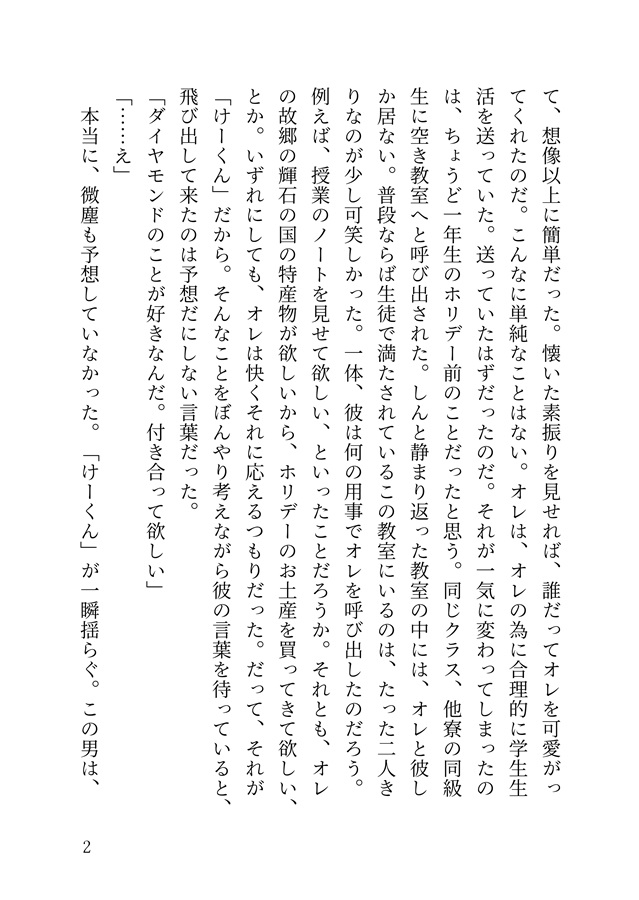 て、想像以上に簡単だった。懐いた素振りを見せれば、誰だってオレを可愛がっ
てくれたのだ。こんなに単純なことはない。オレは、オレの為に合理的に学生生
活を送っていた。送っていたはずだったのだ。それが一気に変わってしまったの
は、ちょうど一年生のホリデー前のことだったと思う。同じクラス、他寮の同級
生に空き教室へと呼び出された。しんと静まり返った教室の中には、オレと彼し
か居ない。普段ならば生徒で満たされているこの教室にいるのは、たった二人き
りなのが少し可笑しかった。一体、彼は何の用事でオレを呼び出したのだろう。
例えば、授業のノートを見せて欲しい、といったことだろうか。それとも、オレ
の故郷の輝石の国の特産物が欲しいから、ホリデーのお土産を買ってきて欲しい、
とか。いずれにしても、オレは快くそれに応えるつもりだった。だって、それが
「けーくん」だから。そんなことをぼんやり考えながら彼の言葉を待っていると、
飛び出して来たのは予想だにしない言葉だった。
「ダイヤモンドのことが好きなんだ。付き合って欲しい」
「……え」
本当に、微塵も予想していなかった。「けーくん」が一瞬揺らぐ。この男は、
2